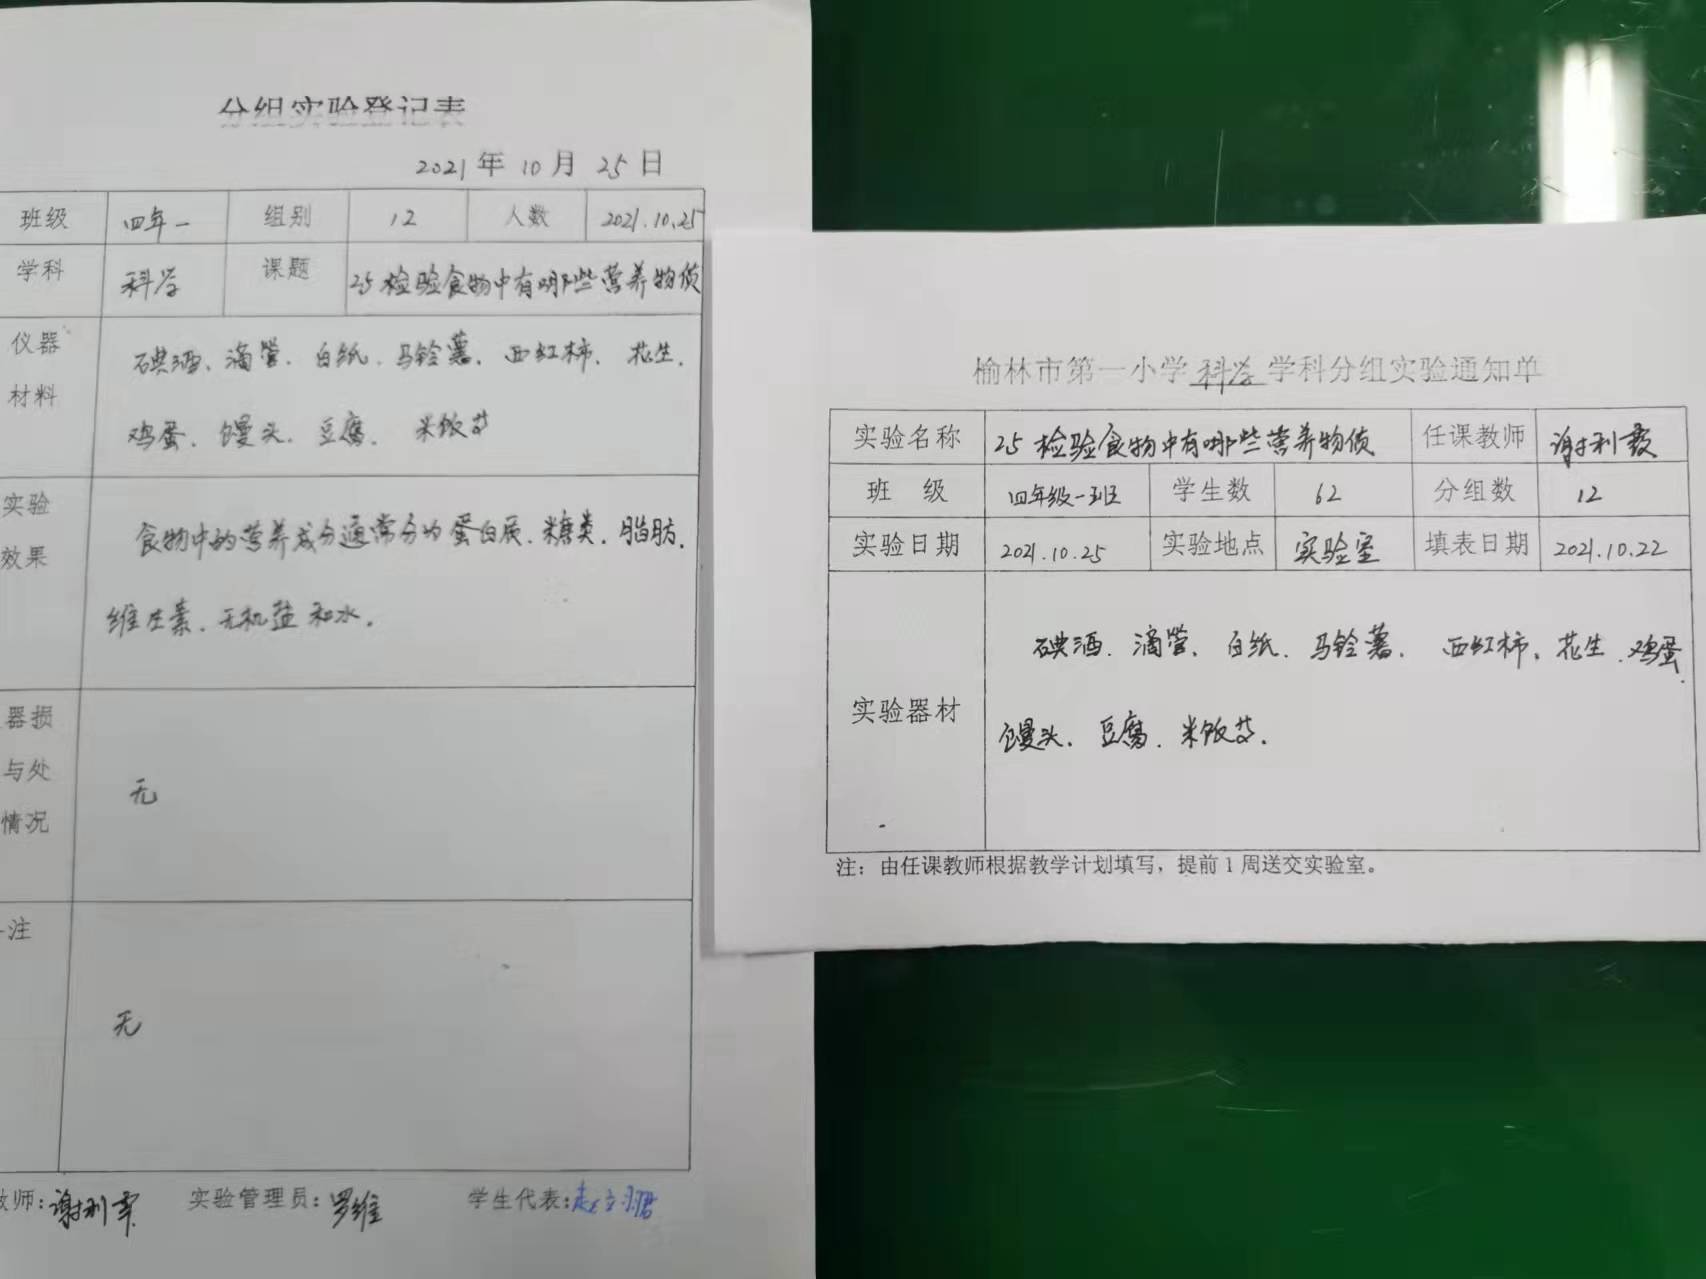 分组实验登记表
2021年10月25日
班级 四年一 组别 12 人数 2021.10.25
学科 科学 课题 25检验食物中有哪些营养物质
仪器 碘酒、滴管、白纸、马铃薯、西红柿、花生、
材料 鸡蛋、馒头、豆腐、米饭等
实验 食物中的营养成分通常分为蛋白质、糖类、脂肪、
效果 维生素、无机盐和水。
器损
与处 无
情况
注
无
教师:谢利霞 实验管理员:罗维 学生代表:
榆林市第一小学科学学科分组实验通知单
实验名称 25检验食物中有哪些营养物质 任课教师 谢利霞
班 级 四年级一班 学生数 62 分组数 12
实验日期 2021.10.25 实验地点 实验室 填表日期 2021.10.22
碘酒、滴管、白纸、马铃薯、西红柿、花生、鸡蛋、
实验器材 馒头、豆腐、米饭等。
注：由任课教师根据教学计划填写，提前1周送交实验室。